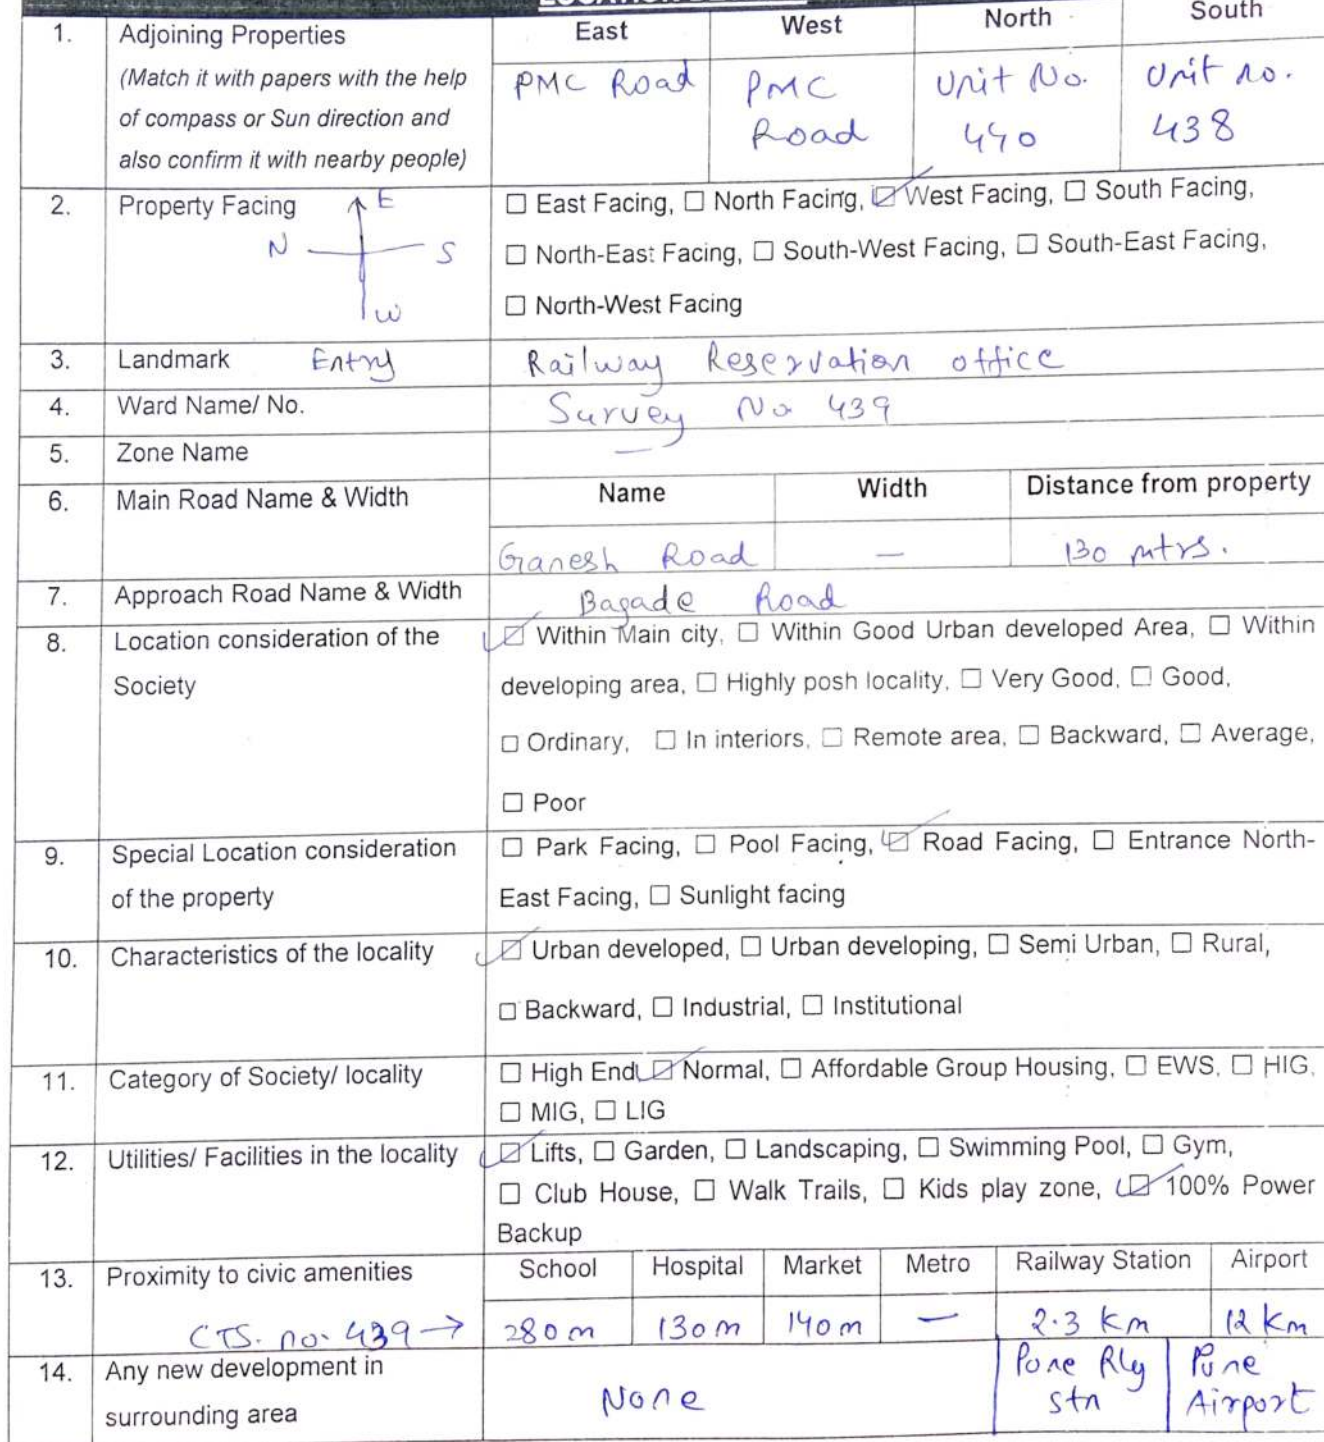 1. Adjoining Properties East West North South
(Match it with papers with the help PMC Road PMC Unit No. Unit no.
of compass or Sun direction and Road 440 438
also confirm it with nearby people)
2. Property Facing E ☐ East Facing, ☐ North Facing, ☑ West Facing, ☐ South Facing,
N S ☐ North-East Facing, ☐ South-West Facing, ☐ South-East Facing,
W ☐ North-West Facing
3. Landmark Entry Railway Reservation office
4. Ward Name/ No. Survey No 439
5. Zone Name —
6. Main Road Name & Width Name Width Distance from property
Ganesh Road — 130 mtrs.
7. Approach Road Name & Width Bagade Road
8. Location consideration of the ☑ Within Main city, ☐ Within Good Urban developed Area, ☐ Within
Society developing area, ☐ Highly posh locality, ☐ Very Good, ☐ Good,
☐ Ordinary, ☐ In interiors, ☐ Remote area, ☐ Backward, ☐ Average,
☐ Poor
9. Special Location consideration ☐ Park Facing, ☐ Pool Facing, ☑ Road Facing, ☐ Entrance North-
of the property East Facing, ☐ Sunlight facing
10. Characteristics of the locality ☑ Urban developed, ☐ Urban developing, ☐ Semi Urban, ☐ Rural,
☐ Backward, ☐ Industrial, ☐ Institutional
11. Category of Society/ locality ☐ High End, ☑ Normal, ☐ Affordable Group Housing, ☐ EWS, ☐ HIG,
☐ MIG, ☐ LIG
12. Utilities/ Facilities in the locality ☑ Lifts, ☐ Garden, ☐ Landscaping, ☐ Swimming Pool, ☐ Gym,
☐ Club House, ☐ Walk Trails, ☐ Kids play zone, ☑ 100% Power
Backup
13. Proximity to civic amenities School Hospital Market Metro Railway Station Airport
CTS. no. 439 → 280 m 130 m 140 m — 2.3 Km 12 Km
14. Any new development in None Pune Rly Pune
surrounding area stn Airport